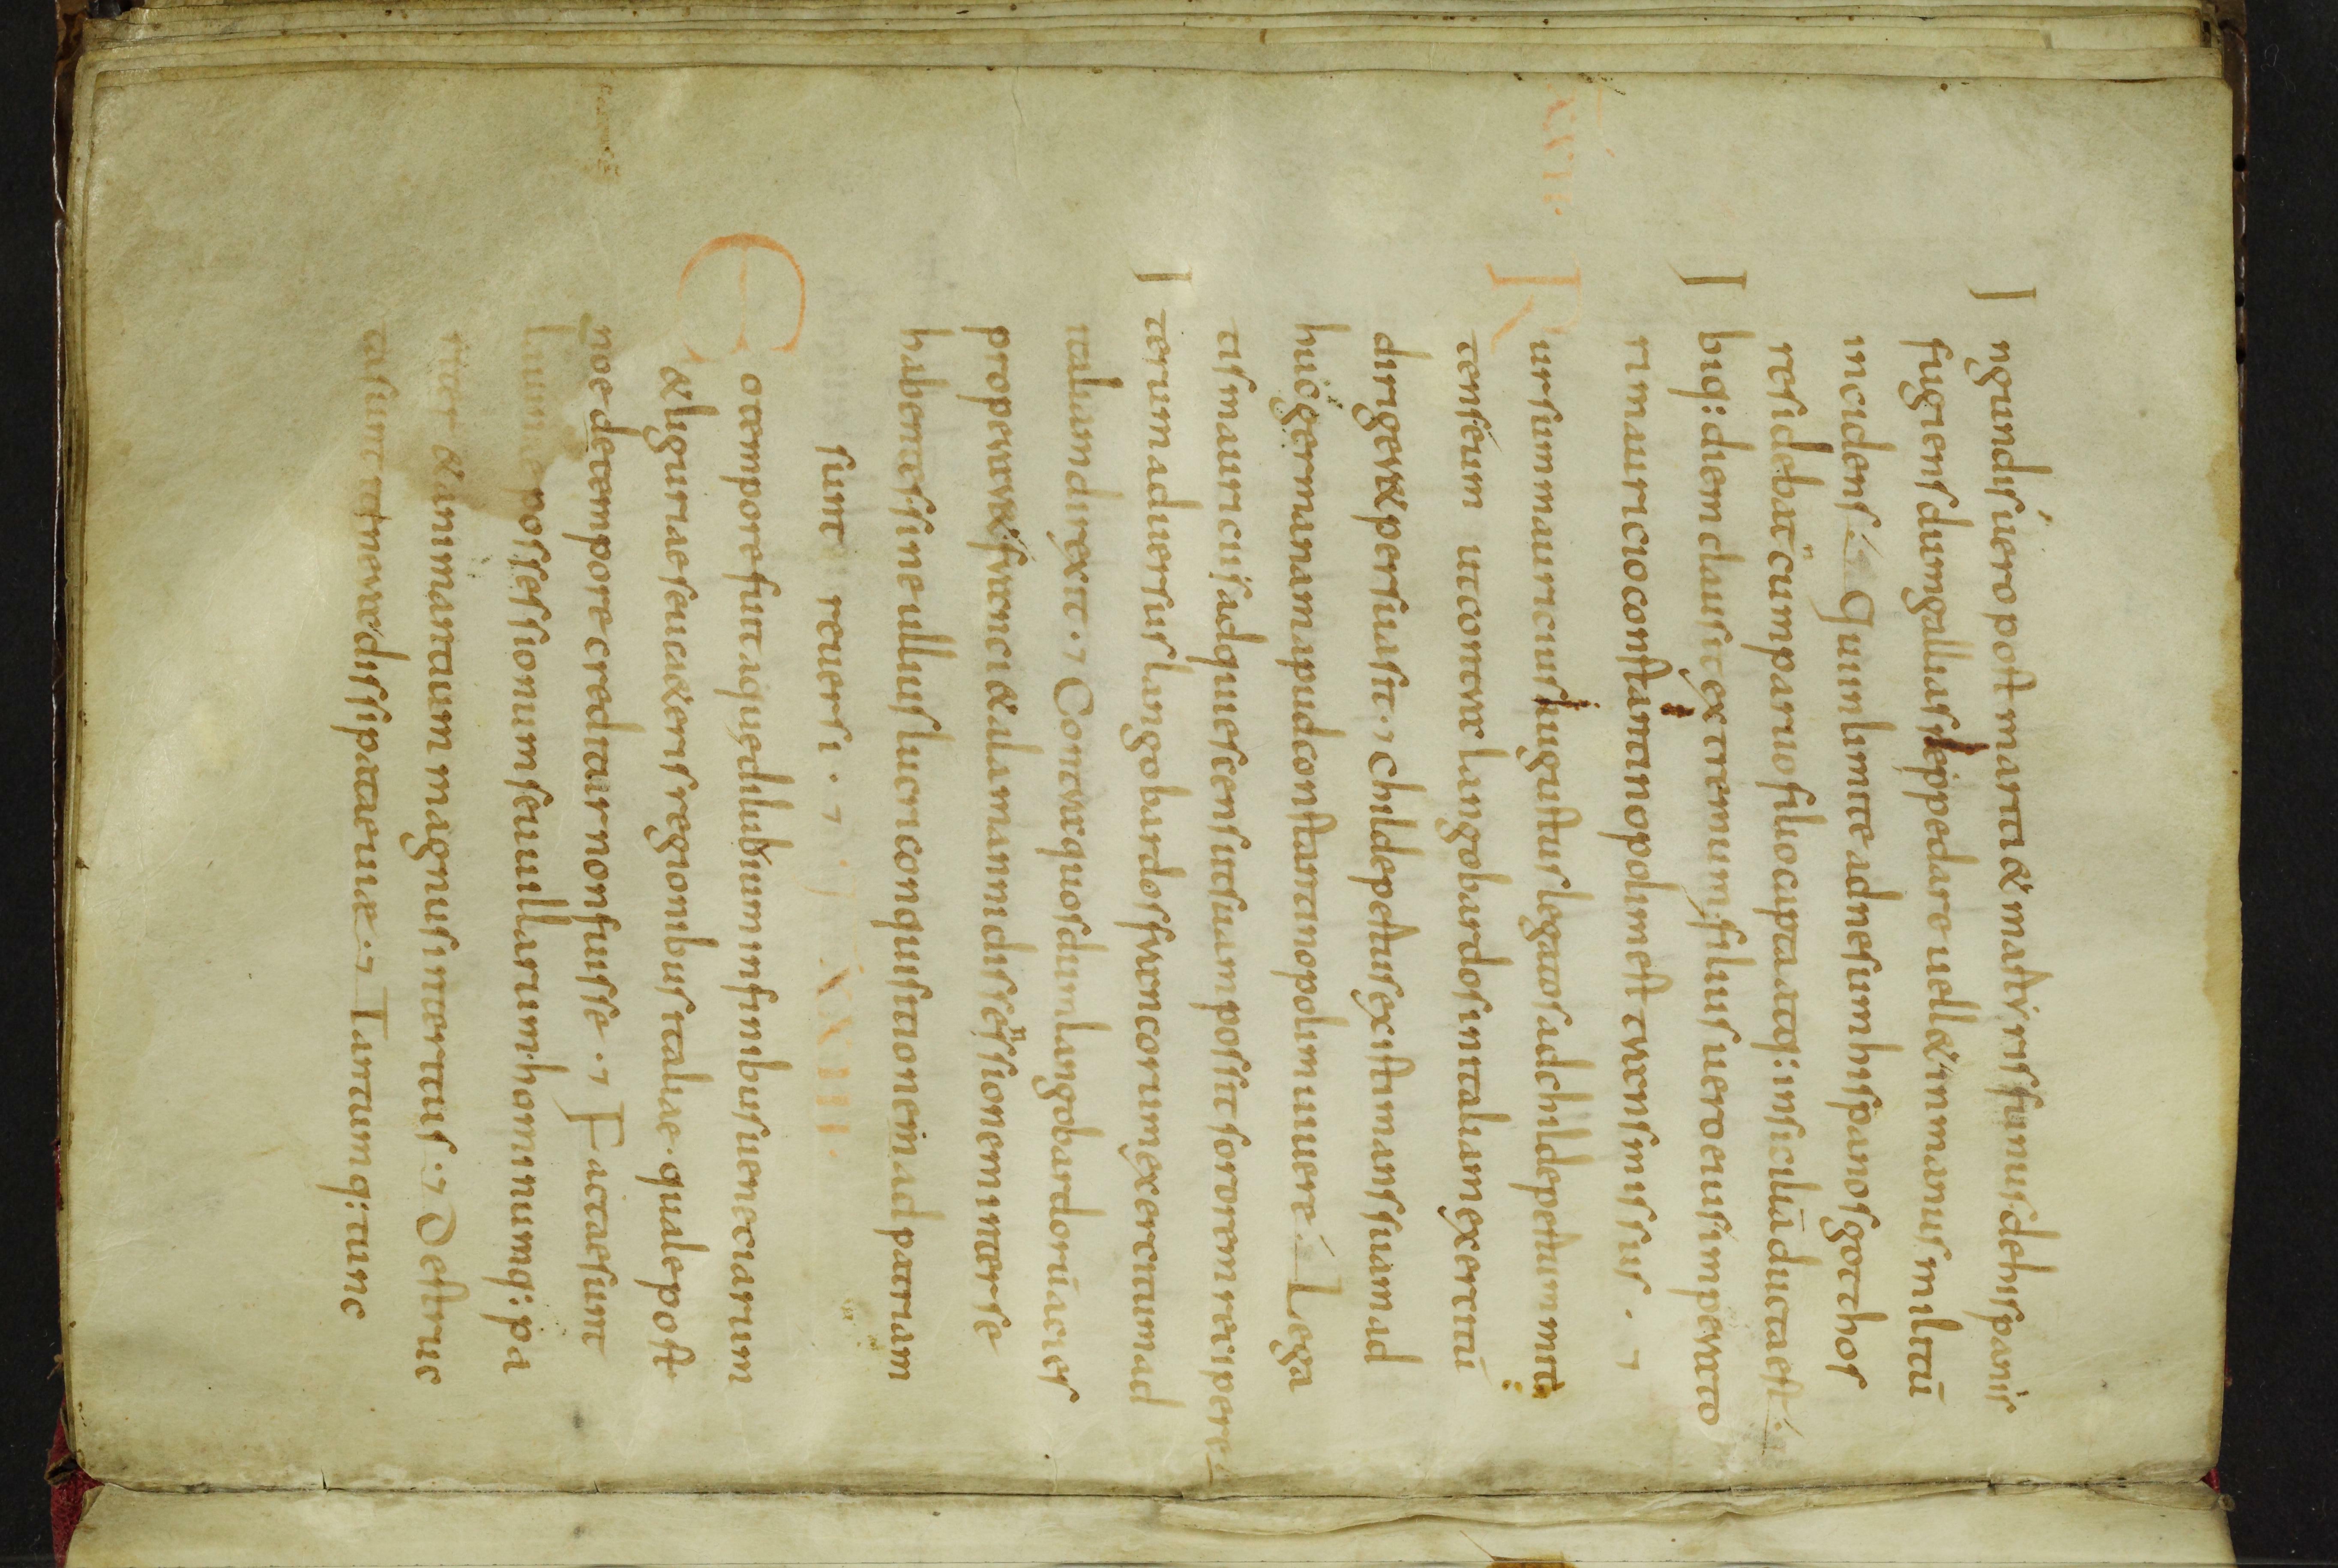 Ingundis uero post mariti & martiris funus de hispanis
fugiens dum gallias repedare uell& in manus militū
incidens. Qui in limite ad nesum hispanos gotthos
residebat cum paruo filio capta atq: in siciliā ducta est.
Ibiq: diem clausit extremum, filius uero eius imperato
ri mauricio constantinopolim est transmissus.
xxii.
Rursum mauricius augustus legatos ad childepertum mit
tens eum ut contra langobardos in italiam exercitū
diriger& persuasit. Childepertus existimans suam ad
huc germanam apud constantinopolim uiuere. Lega
tis mauricii adquiescens ut suam possit sororem recipere.
Iterum aduersus langobardos francorum exercitum ad
italiam direxit. Contra quos dum langobardorū acies
properar& franci & alamanni dissensionem inter se
habentes sine ullius lucri conquisitionem ad patriam
sunt reuersi. XXIII.
Eo tempore fuit aque diluuium in finibus uenetiarum
& liguriae seu ceteris regionibus italiae. quale post
noe tempore creditur non fuisse. Factae sunt
lauinae possessionum seu uillarum. hominumq: pa
riter & animantium magnus interitus. Destruc
ta sunt itinera dissipatae uiae. Tantumq: tunc